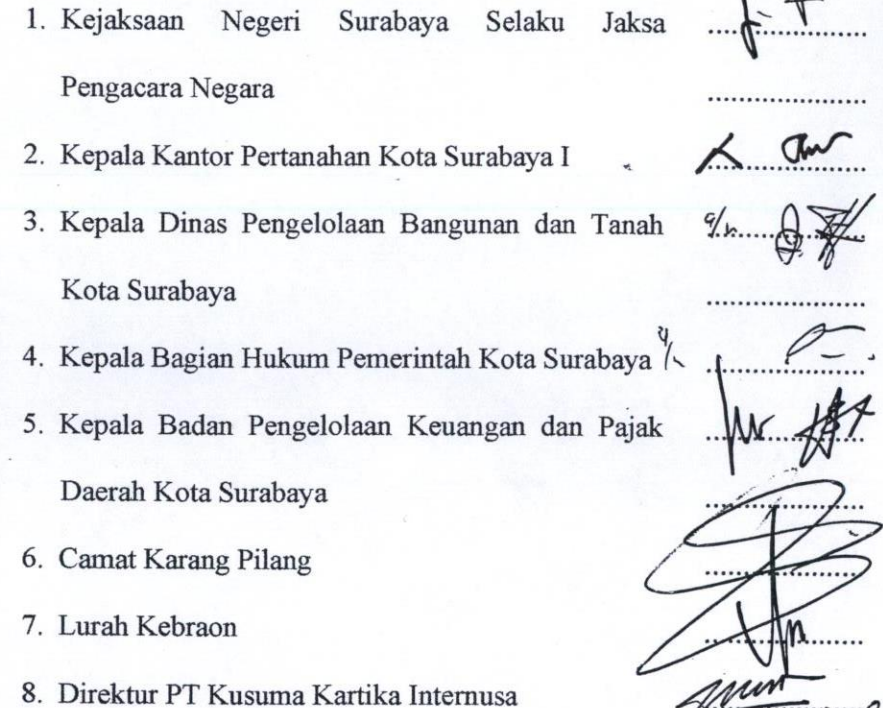 1. Kejaksaan Negeri Surabaya Selaku Jaksa
Pengacara Negara
2. Kepala Kantor Pertanahan Kota Surabaya I
3. Kepala Dinas Pengelolaan Bangunan dan Tanah
Kota Surabaya
4. Kepala Bagian Hukum Pemerintah Kota Surabaya
5. Kepala Badan Pengelolaan Keuangan dan Pajak
Daerah Kota Surabaya
6. Camat Karang Pilang
7. Lurah Kebraon
8. Direktur PT Kusuma Kartika Internusa